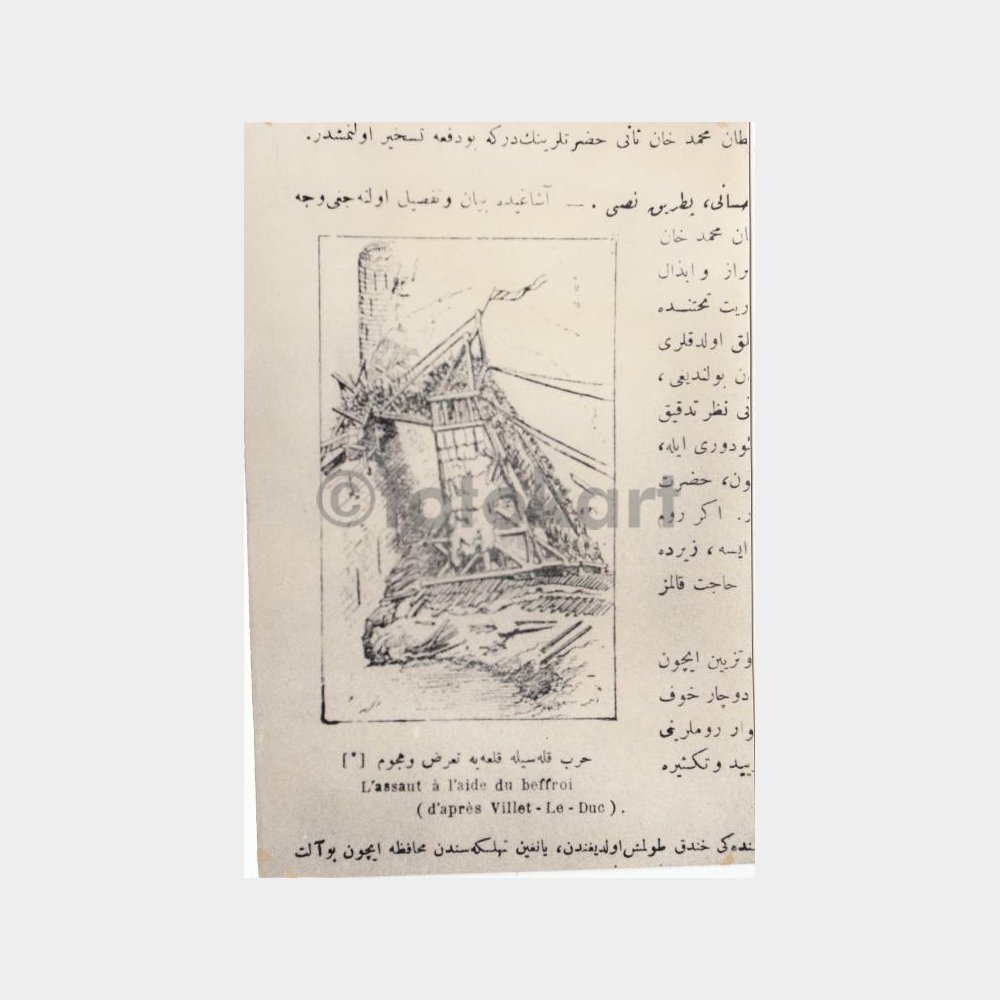 طان محمد خان ثانی حضرتلرینك‌دركه بودفعه تسخیر اولنمشدر.
آشاغیده بیان و تفصیل اولنه‌جغی وجه
ان محمد خان
راز و ابذال
ریت تحتنـده
لق اولدقلری
ن بولندیغی ،
نی نظر تدقیق
ئودوری ایله،
ون، حضرت
ر. اكر روم
ایسه ، زیرده
حاجت قالمز
وتزیین ایچون
دوچار خوف
وار روملرینی
یید و تكثیره
©fotokart
حرب قله‌سیله قلعه‌یه تعرض وهجوم [*]
L'assaut à l'aide du beffroi
(d'après Villet-Le-Duc).
نده‌كی خندق طولمش اولدیغندن، یانغین تهلـكه‌سندن محافظه ایچون بو آلت